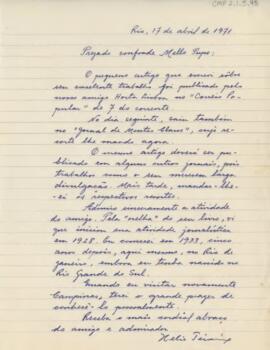 CMP 2.1.5.95
Rio, 17 de abril de 1971.
Prezado confrade Mello Pupo:
O pequeno artigo que escrevi sôbre
seu excelente trabalho foi publicado pelo
nosso amigo Horta Lisboa no "Correio Po-
pular" de 7 do corrente.
No dia seguinte, saiu também
no "Jornal de Montes Claros", cujo re-
corte lhe mando agora.
O mesmo artigo deverá ser pu-
blicado em alguns outros jornais, pois
trabalhos como o seu merecem larga
divulgação. Mais tarde, mandar-lhe-
ei os respectivos recortes.
Admiro sinceramente a atividade
do amigo. Pela "orelha" de seu livro, vi
que iniciou sua atividade jornalística
em 1928. Eu comecei em 1933, cinco
anos depois, aqui mesmo, no Rio de
Janeiro, embora eu tenha nascido no
Rio Grande do Sul.
Quando eu visitar novamente
Campinas, terei o grande prazer de
conhecê-lo pessoalmente.
Receba o mais cordial abraço
do amigo e admirador